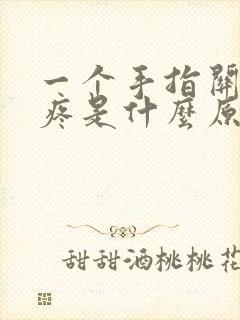 一个手指關
疼是什麼原
甜甜酒桃桃花